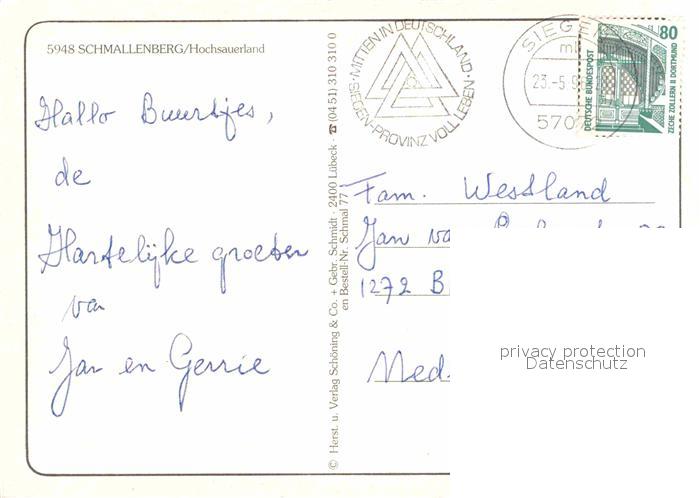 5948 SCHMALLENBERG/Hochsauerland
Hallo Buurtjes,
de
Hartelijke groeten
van
Jan en Gerrie
© Herst. u. Verlag Schöning & Co. + Gebr. Schmidt · 2400 Lübeck · ☎ (04 51) 310 310 0
en Bestell-Nr. Schmal 77
SIEGEN·MITTEN IN DEUTSCHLAND·
SIEGEN-PROVINZ VOLL LEBEN·
SIEGEN
23.-5.9
570
80
DEUTSCHE BUNDESPOST
ZECHE ZOLLERN II DORTMUND
Fam. Westland
Jan va
1272 B
Ned.
privacy protection
Datenschutz